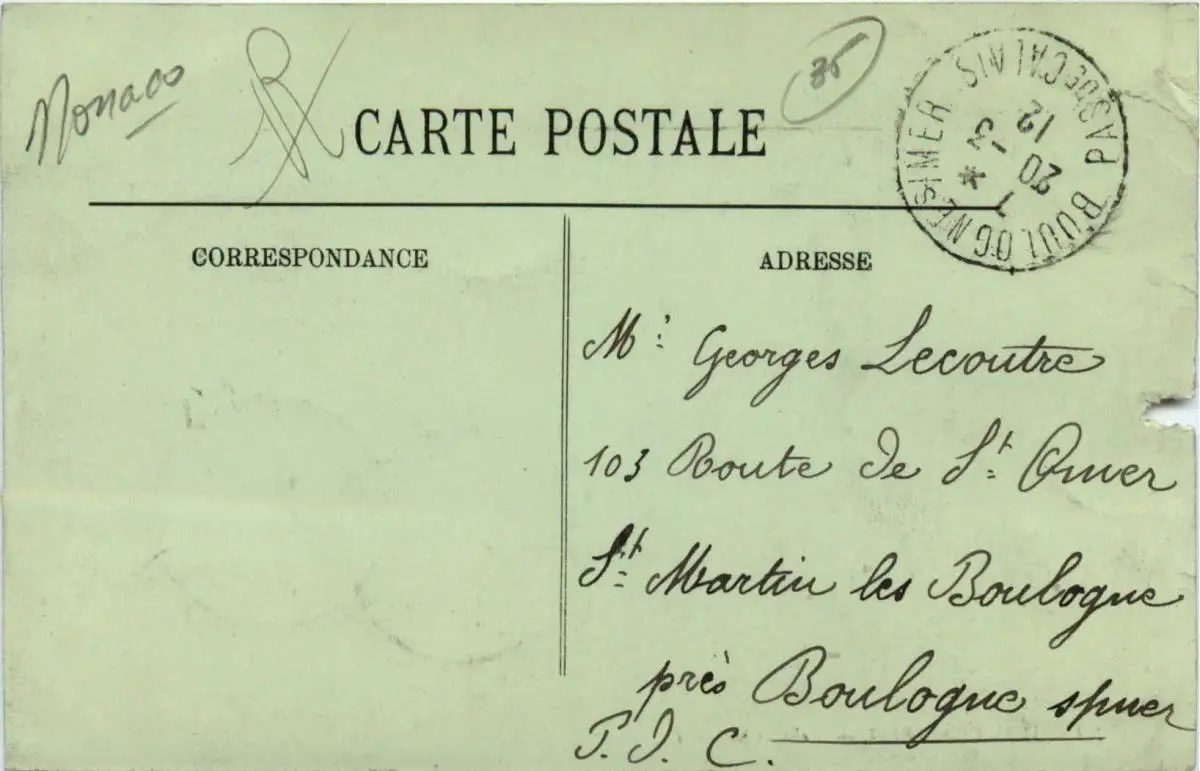 Monaco
35
CARTE POSTALE
BOULOGNE S MER PAS DE CALAIS
20 - 3
12
CORRESPONDANCE
ADRESSE
Mr Georges Lecoutre
103 Route de St Omer
St Martin les Boulogne
près Boulogne s/mer
P. D. C.